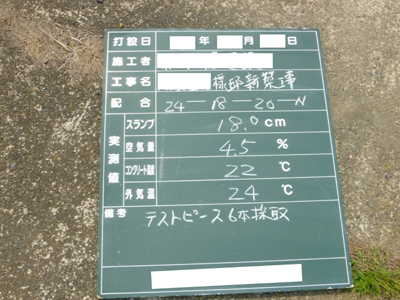 打設日 年 月 日
施工者
工事名 様邸新築工事
配合 24-18-20-N
実測値
スランプ 18.0cm
空気量 4.5 %
コンクリート温度 22 ℃
外気温 24 ℃
備考
テストピース6本採取